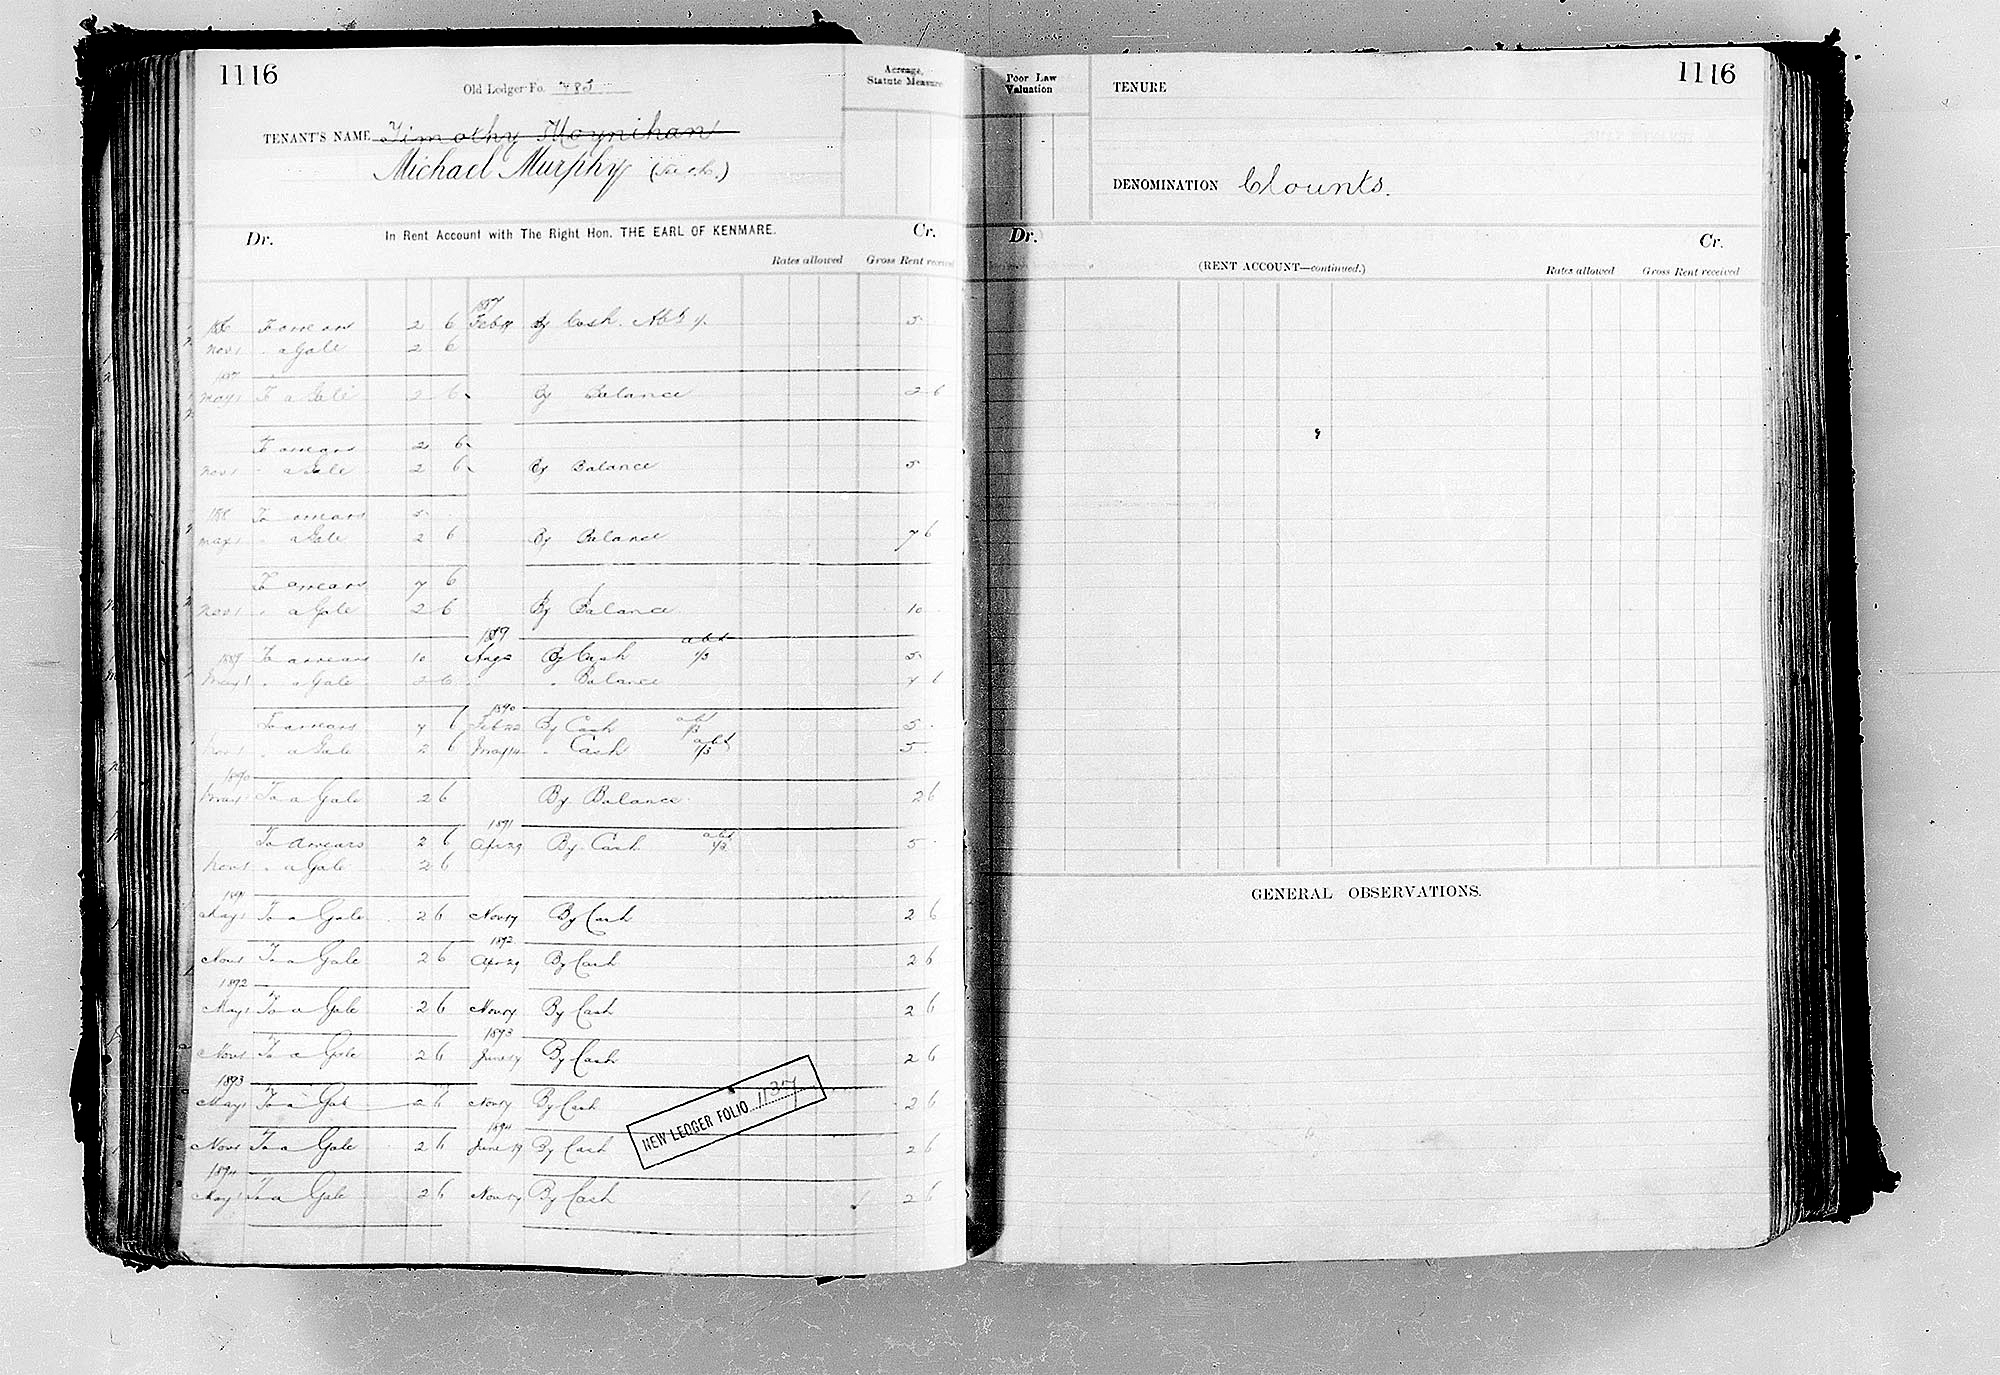 1116
Old Ledger Fo. 785
Acreage, Statute Measure
TENANT'S NAME Timothy Moynihan
Michael Murphy
Dr. In Rent Account with The Right Hon. THE EARL OF KENMARE. Cr.
Rates allowed Gross Rent received
1887
1886 To arrears 2 6 Feb By Cash. 5
Nov 1 " a Gale 2 6
1887
May 1 To a Gale 2 6 By Balance 2 6
To arrears 2 6
Nov 1 " a Gale 2 6 By Balance 5
188 To arrears 5
May 1 " a Gale 2 6 By Balance 7 6
To arrears 7 6
Nov 1 " a Gale 2 6 By Balance 10
1889 abt
1889 To arrears 10 Aug 2 By Cash 1/3 5
May 1 " a Gale 2 6 " Balance 7 6
1890
To arrears 7 6 Feb 22 By Cash abt 1/3 5
Nov 1 " a Gale 2 6 May 14 " Cash abt 1/3 5
1890
May 1 To a Gale 2 6 By Balance 2 6
1891
To arrears 2 6 Apr 29 By Cash abt 1/3 5
Nov 1 " a Gale 2 6
1891
May 1 To a Gale 2 6 Nov 17 By Cash 2 6
1892
Nov 1 To a Gale 2 6 Apr 29 By Cash 2 6
1892
May 1 To a Gale 2 6 Nov 17 By Cash 2 6
1893
Nov 1 To a Gale 2 6 June By Cash 2 6
1893
May 1 To a Gale 2 6 Nov 17 By Cash 2 6
1894
Nov 1 To a Gale 2 6 June 19 By Cash 2 6
1894
May 1 To a Gale 2 6 Nov 17 By Cash 2 6
NEW LEDGER FOLIO 1137
1116
Poor Law Valuation
TENURE
DENOMINATION Clounts.
Dr. Cr.
(RENT ACCOUNT—continued.) Rates allowed Gross Rent received
GENERAL OBSERVATIONS.